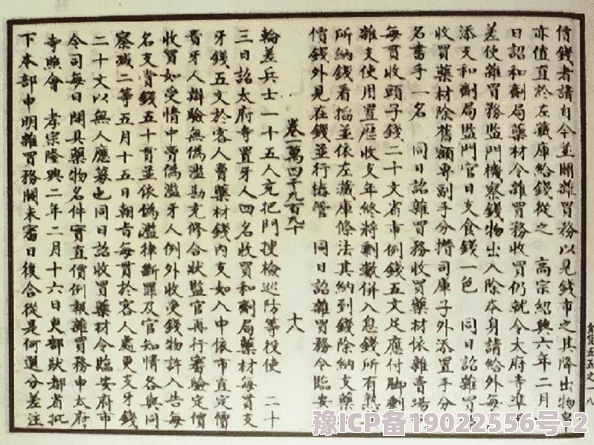 債錢者請自今並關雜買務以見錢市之其降出物皂
亦值直於左藏庫給錢從之 高宗紹興六年二月
日詔和劑局藥材令雜買務收買仍就令太府寺準
差使雜買務監門機察錢物出入除本身請給外每
添支和劑局監門官日支食錢一色 同日詔雜買
收買藥材除舊額專副手分攢司庫子外添置手分
名書手一名 同日詔雜買務收買藥材依雜賣場
每貫收頭子錢二十文省市例錢五文足應付脚剩
雜支使用置歷收支年終將剩數併入息錢所有
所納錢看搯並依左藏庫條法其納到錢除納支藥
價錢外見在錢並行樁管 同日詔雜買務令臨安
卷一萬四千九百六十 十八
輪差兵士一十五人充把門搜檢巡防等役使 二十
三日詔太府寺置牙人四名收買和劑局藥材每貫支
牙錢五文於客人賣藥材錢内支如入中依市直定價
責牙人辯驗無偽濫勘充修合狀監官再行審驗定價
收買如受情中賣偽濫牙人例外收受錢物許人告每
名支賞錢五十貫並依偽濫律斷罪及官知情各與同
察減二等五月十五日朝旨每貫於客人處更支牙錢
二十文以無人應募也同日詔收買藥材令臨安府市
令司每日關具藥物名件實直價例報雜買務申太府
寺照會 孝宗隆興二年二月十六日吏部狀都省批
下本部申明雜買務關未審日後合從是何選分差注
食貨五五之一八
豫ICP备19022556号-2